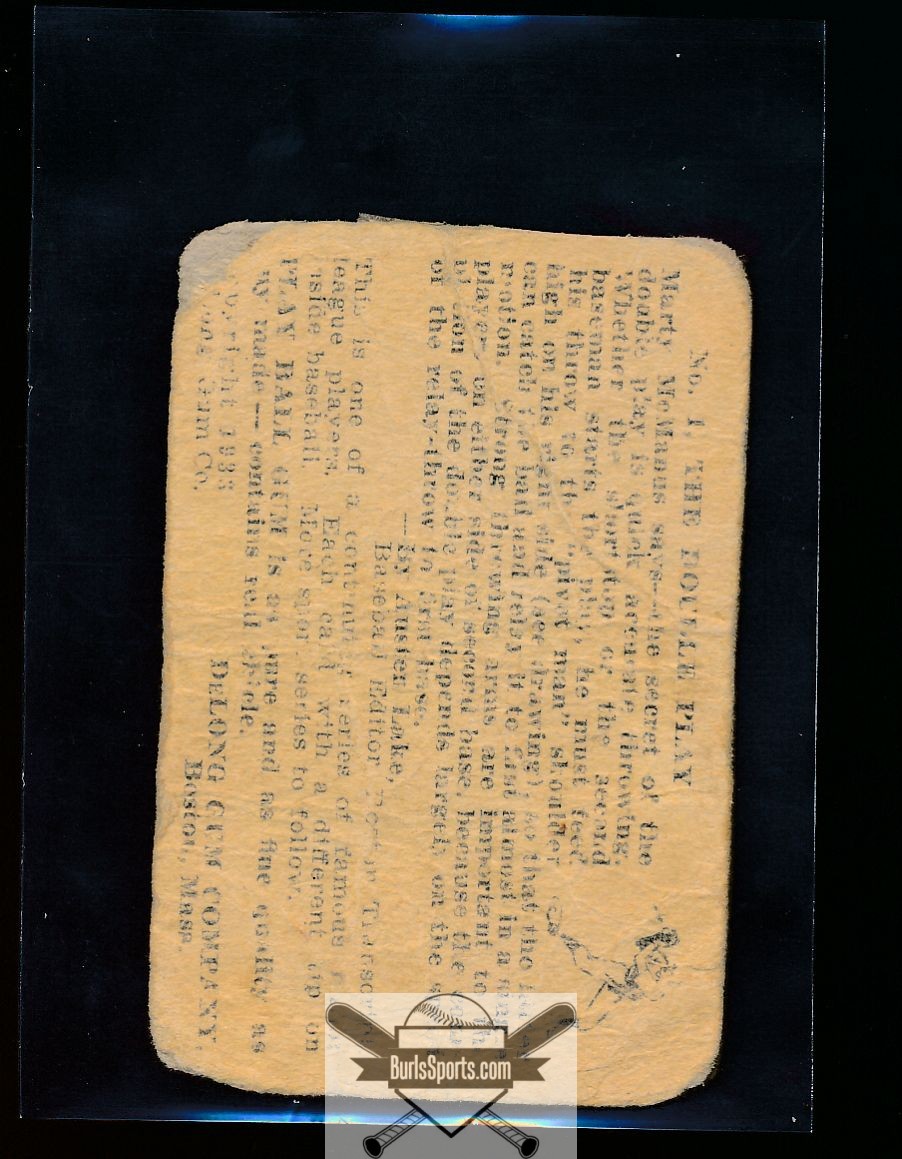 No. 1. THE DOUBLE PLAY
Marty McManus says—the secret of the
double play is quick accurate throwing.
Whether the shortstop or the second
baseman starts the play, he must feed
his throw to the "pivot man" shoulder
high on his right side (see drawing), so that the
can catch the ball and relay it to first almost in a
motion. Strong throwing arms are important to
players on either side of second base, because the
of the double play depends largely on the
of the relay-throw to first base.
—By Austen Lake,
Baseball Editor, Boston Transcript
This is one of a continued series of famous
league players. Each card with a different tip on
inside baseball. More such series to follow.
PLAY BALL GUM is as pure and as fine quality as
made — contains real chicle.
Copyright 1933
DeLong Gum Co.
DELONG GUM COMPANY,
Boston, Mass.
BurlsSports.com